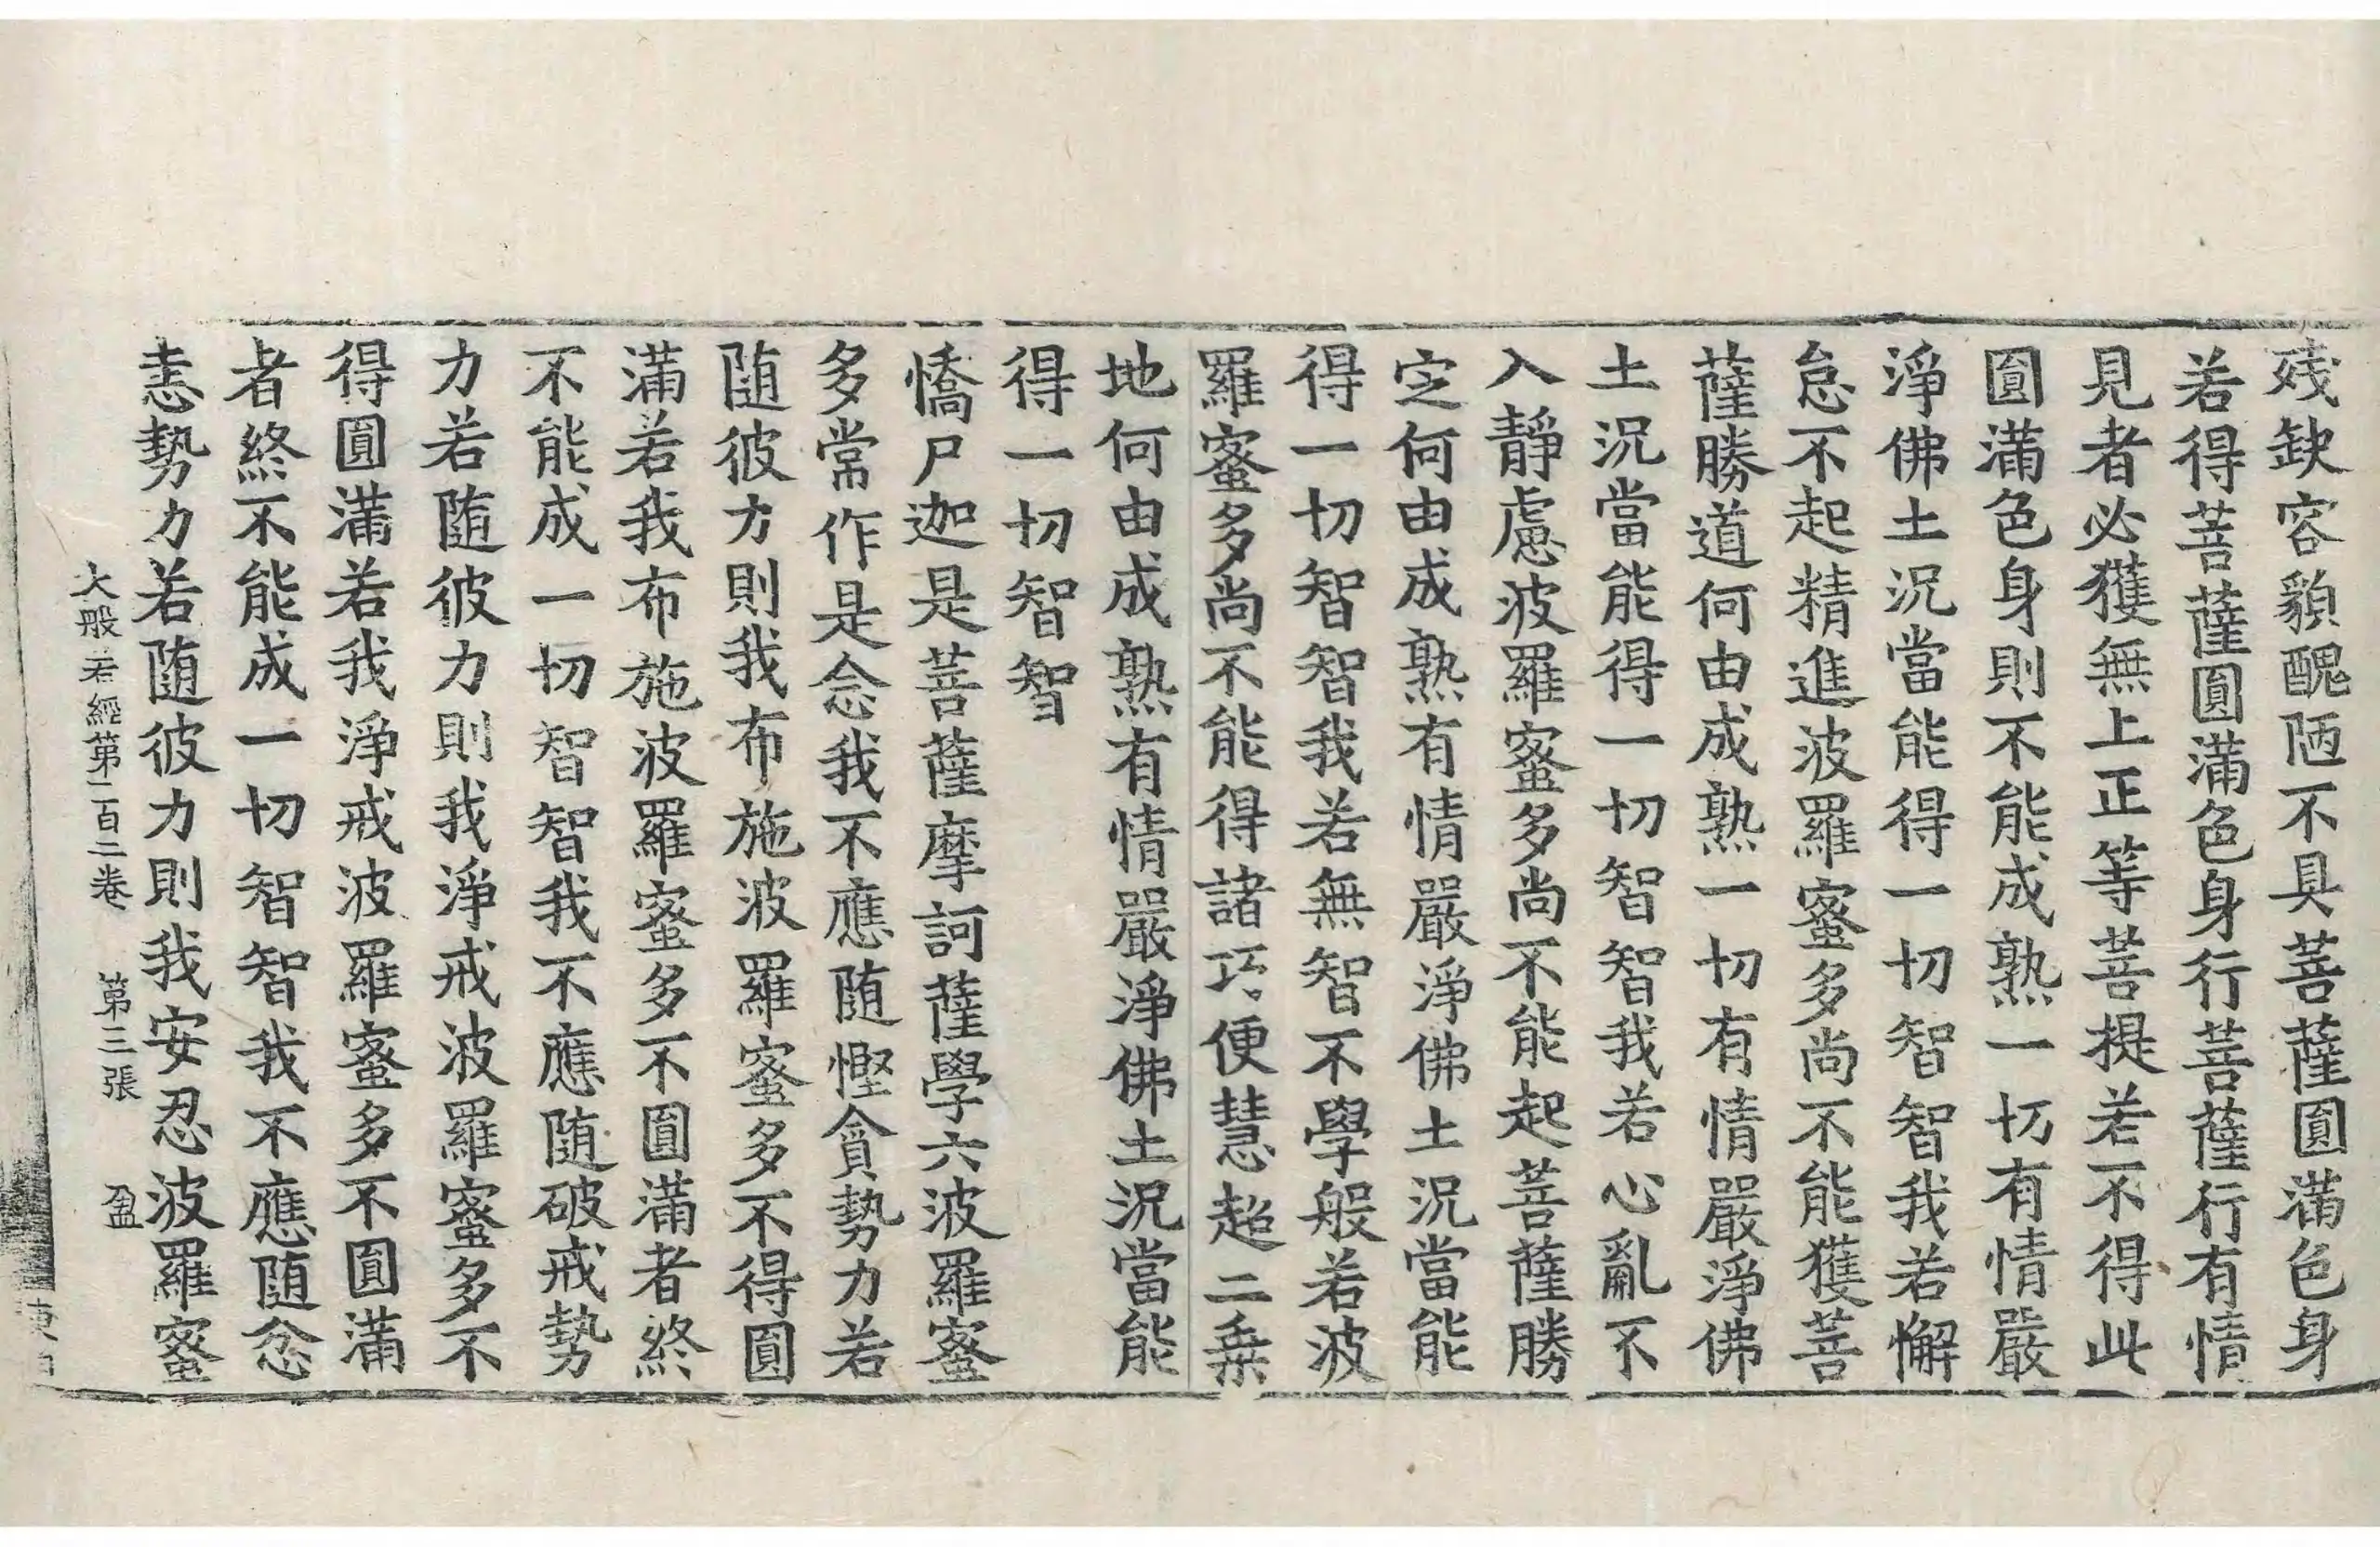 殘缺容貌醜陋不具菩薩圓滿色身
若得菩薩圓滿色身行菩薩行有情
見者必獲無上正等菩提若不得此
圓滿色身則不能成熟一切有情嚴
淨佛土況當能得一切智智我若懈
怠不起精進波羅蜜多尚不能獲菩
薩勝道何由成熟一切有情嚴淨佛
土況當能得一切智智我若心亂不
入靜慮波羅蜜多尚不能起菩薩勝
定何由成熟有情嚴淨佛土況當能
得一切智智我若無智不學般若波
羅蜜多尚不能得諸巧便慧超二乘
地何由成熟有情嚴淨佛土況當能
得一切智智
憍尸迦是菩薩摩訶薩學六波羅蜜
多常作是念我不應隨慳貪勢力若
隨彼力則我布施波羅蜜多不得圓
滿若我布施波羅蜜多不圓滿者終
不能成一切智智我不應隨破戒勢
力若隨彼力則我淨戒波羅蜜多不
得圓滿若我淨戒波羅蜜多不圓滿
者終不能成一切智智我不應隨忿
恚勢力若隨彼力則我安忍波羅蜜
大般若經第一百二卷 第三張 盈